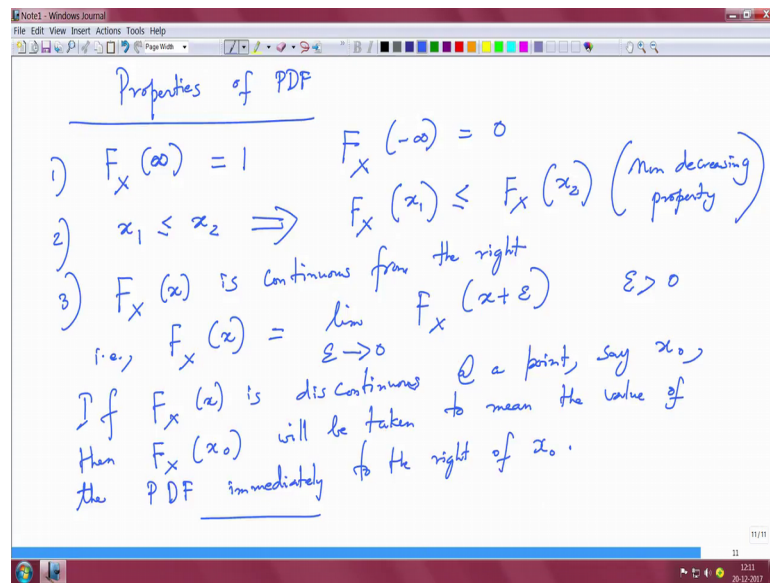 Note1 - Windows Journal
File Edit View Insert Actions Tools Help
Page Width
Properties of PDF
1) F_X (∞) = 1 F_X (-∞) = 0
2) x_1 ≤ x_2 ⟹ F_X (x_1) ≤ F_X (x_2) (Non decreasing property)
3) F_X (x) is continuous from the right
i.e., F_X (x) = lim_{ε→0} F_X (x+ε) ε>0
If F_X (x) is discontinuous @ a point, say x_0,
then F_X (x_0) will be taken to mean the value of
the PDF immediately to the right of x_0.
11/11
11
12:11
20-12-2017